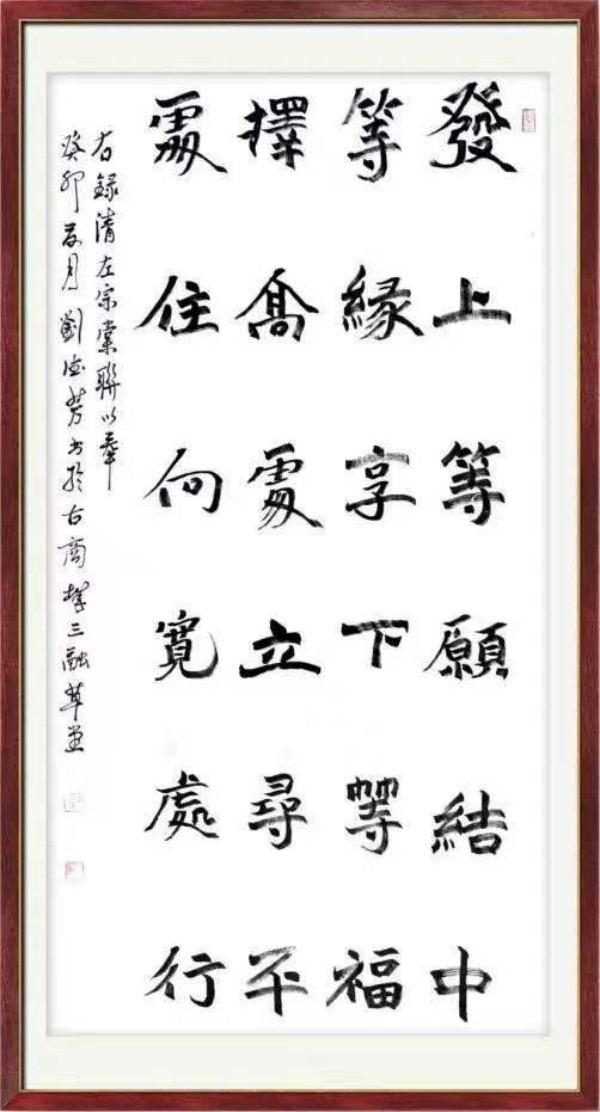 發上等願結中
等緣享下等福
擇高處立尋平
處住向寬處行
右錄清左宗棠聯以奉
癸卯月劉德芳書於古商三融草堂